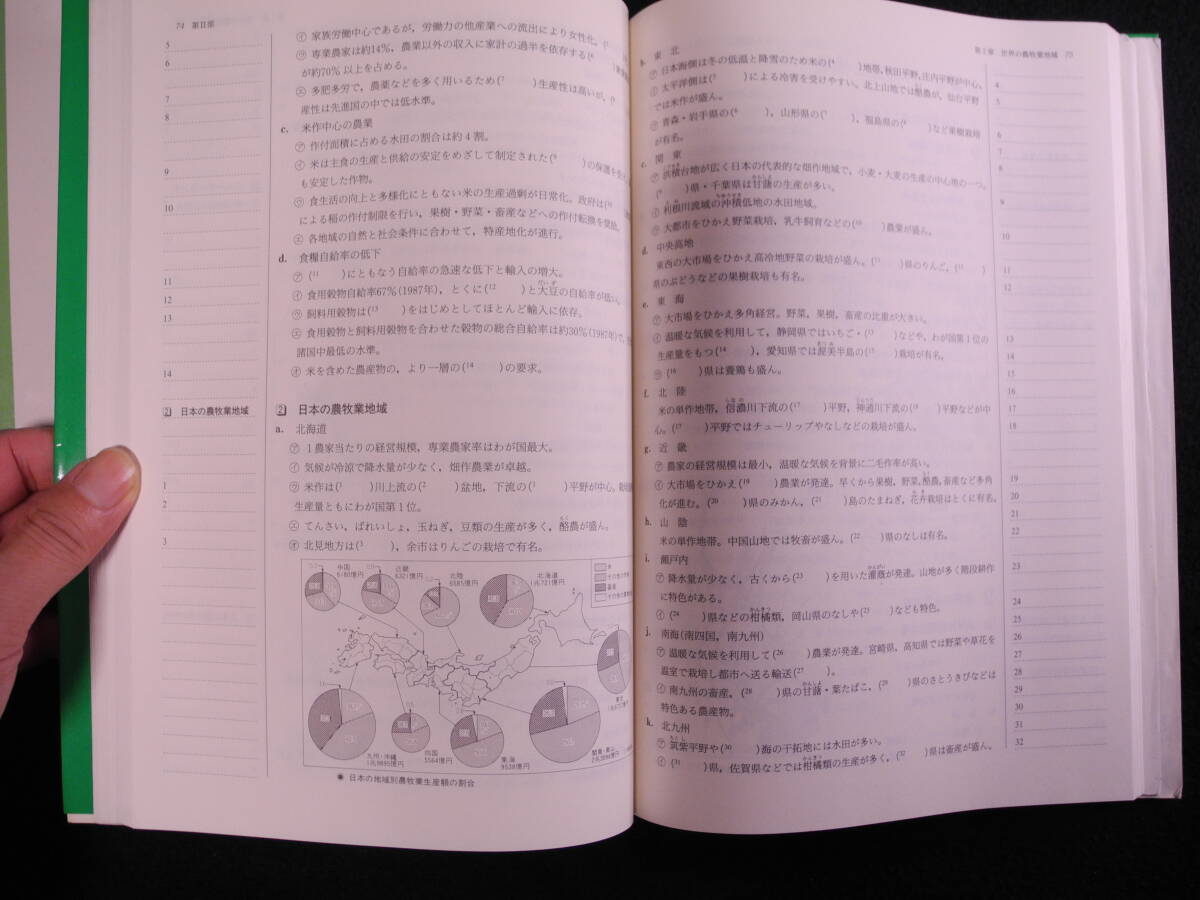 74 第II部
5
6
7
8
9
10
11
12
13
14
2 日本の農牧業地域
1
2
3
㋑ 家族労働中心であるが，労働力の他産業への流出により女性化，
㋒ 専業農家は約14%，農業以外の収入に家計の過半を依存する(6
が約70%以上を占める。
㋓ 多肥多労で，農薬などを多く用いるため(7 )生産性は高いが，
産性は先進国の中では低水準。
c. 米作中心の農業
㋐ 作付面積に占める水田の割合は約4割。
㋑ 米は主食の生産と供給の安定をめざして制定された(9 )の保護を
も安定した作物。
㋒ 食生活の向上と多様化にともない米の生産過剰が日常化。政府は(10
による稲の作付制限を行い，果樹・野菜・畜産などへの作付転換を奨励。
㋓ 各地域の自然と社会条件に合わせて，特産地化が進行。
d. 食糧自給率の低下
㋐ (11 )にともなう自給率の急速な低下と輸入の増大。
㋑ 食用穀物自給率67%(1987年)，とくに(12 )と大豆の自給率が低い。
㋒ 飼料用穀物は(13 )をはじめとしてほとんど輸入に依存。
㋓ 食用穀物と飼料用穀物を合わせた穀物の総合自給率は約30%(1987年)で，
諸国中最低の水準。
㋔ 米を含めた農産物の，より一層の(14 )の要求。
2 日本の農牧業地域
a. 北海道
㋐ 1農家当たりの経営規模，専業農家率はわが国最大。
㋑ 気候が冷涼で降水量が少なく，畑作農業が卓越。
㋒ 米作は(1 )川上流の(2 )盆地，下流の(3 )平野が中心。
生産量ともにわが国第1位。
㋓ てんさい，ばれいしょ，玉ねぎ，豆類の生産が多く，酪農が盛ん。
㋔ 北見地方は(3 )，余市はりんごの栽培で有名。
中国
6180億円
近畿
6321億円
北陸
6585億円
北海道
1兆721億円
九州・沖縄
1兆9895億円
四国
5564億円
東海
9538億円
関東・東山
◉ 日本の地域別農牧業生産額の割合
第2章 世界の農牧業地域 75
b. 東北
㋐ 日本海側は冬の低温と降雪のため米の(4 )地帯，秋田平野，庄内平野が中心。
㋑ 太平洋側は(5 )による冷害を受けやすい。北上山地では酪農が，仙台平野
では米作が盛ん。
㋒ 青森・岩手県の(6 )，山形県の(7 )，福島県の(8 )など果樹栽培
が有名。
c. 関東
㋐ 洪積台地が広く日本の代表的な畑作地域で，小麦・大麦の生産の中心地の一つ。
(9 )県・千葉県は甘藷の生産が多い。
㋑ 利根川流域の沖積低地の水田地域。
㋒ 大都市をひかえ野菜栽培，乳牛飼育などの(10 )農業が盛ん。
d. 中央高地
東西の大市場をひかえ高冷地野菜の栽培が盛ん。(11 )県のりんご，(12 )
県のぶどうなどの果樹栽培も有名。
e. 東海
㋐ 大市場をひかえ多角経営。野菜，果樹，畜産の比重が大きい。
㋑ 温暖な気候を利用して，静岡県ではいちご・(13 )などや，わが国第1位の
生産量をもつ(14 )，愛知県では渥美半島の(15 )栽培が有名。
㋒ (16 )県は養鶏も盛ん。
f. 北陸
米の単作地帯，信濃川下流の(17 )平野，神通川下流の(18 )平野などが中
心。(17 )平野ではチューリップやなしなどの栽培が盛ん。
g. 近畿
㋐ 農家の経営規模は最小，温暖な気候を背景に二毛作率が高い。
㋑ 大市場をひかえ(19 )農業が発達。早くから果樹，野菜，酪農，畜産など多角
化が進む。(20 )県のみかん，(21 )島のたまねぎ，花卉栽培はとくに有名。
h. 山陰
米の単作地帯。中国山地では牧畜が盛ん。(22 )県のなしは有名。
i. 瀬戸内
㋐ 降水量が少なく，古くから(23 )を用いた灌漑が発達。山地が多く階段耕作
に特色がある。
㋑ (24 )県などの柑橘類，岡山県のなしや(25 )なども特色。
j. 南海(南四国，南九州)
㋐ 温暖な気候を利用して(26 )農業が発達。宮崎県，高知県では野菜や草花を
温室で栽培し都市へ送る輸送(27 )。
㋑ 南九州の畜産，(28 )県の甘藷・葉たばこ，(29 )県のさとうきびなどは
特色ある農産物。
k. 北九州
㋐ 筑紫平野や(30 )海の干拓地には水田が多い。
㋑ (31 )県，佐賀県などでは柑橘類の生産が多く，(32 )県は畜産が盛ん。
4
5
6
7
8
9
10
11
12
13
14
15
16
17
18
19
20
21
22
23
24
25
26
27
28
29
30
31
32